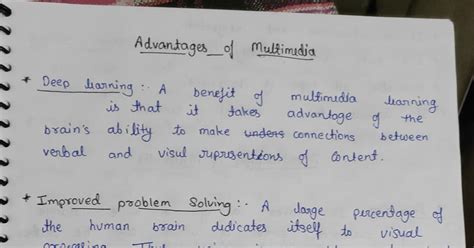 Advantages of Multimedia
* Deep learning :- A benefit of multimedia learning
is that it takes advantage of the
brain's ability to make unders connections between
verbal and visul ruprsentions of content.
* Improved problem Solving :- A large percentage of
the human brain dedicates itself to visual